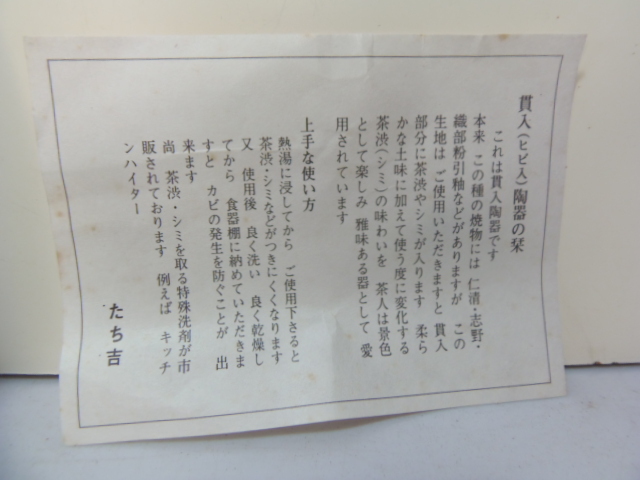 貫入(ヒビ入)陶器の栞
これは貫入陶器です
本来 この種の焼物には 仁清・志野・
織部粉引釉などがありますが この
生地は ご使用いただきますと 貫入
部分に茶渋やシミが入ります 柔ら
かな土味に加えて使う度に変化する
茶渋(シミ)の味わいを 茶人は景色
として楽しみ 雅味ある器として 愛
用されています
上手な使い方
熱湯に浸してから ご使用下さると
茶渋・シミなどがつきにくくなります
又 使用後 良く洗い 良く乾燥し
てから 食器棚に納めていただきま
すと カビの発生を防ぐことが 出
来ます
尚 茶渋・シミを取る特殊洗剤が市
販されております 例えば キッチ
ンハイター
たち吉